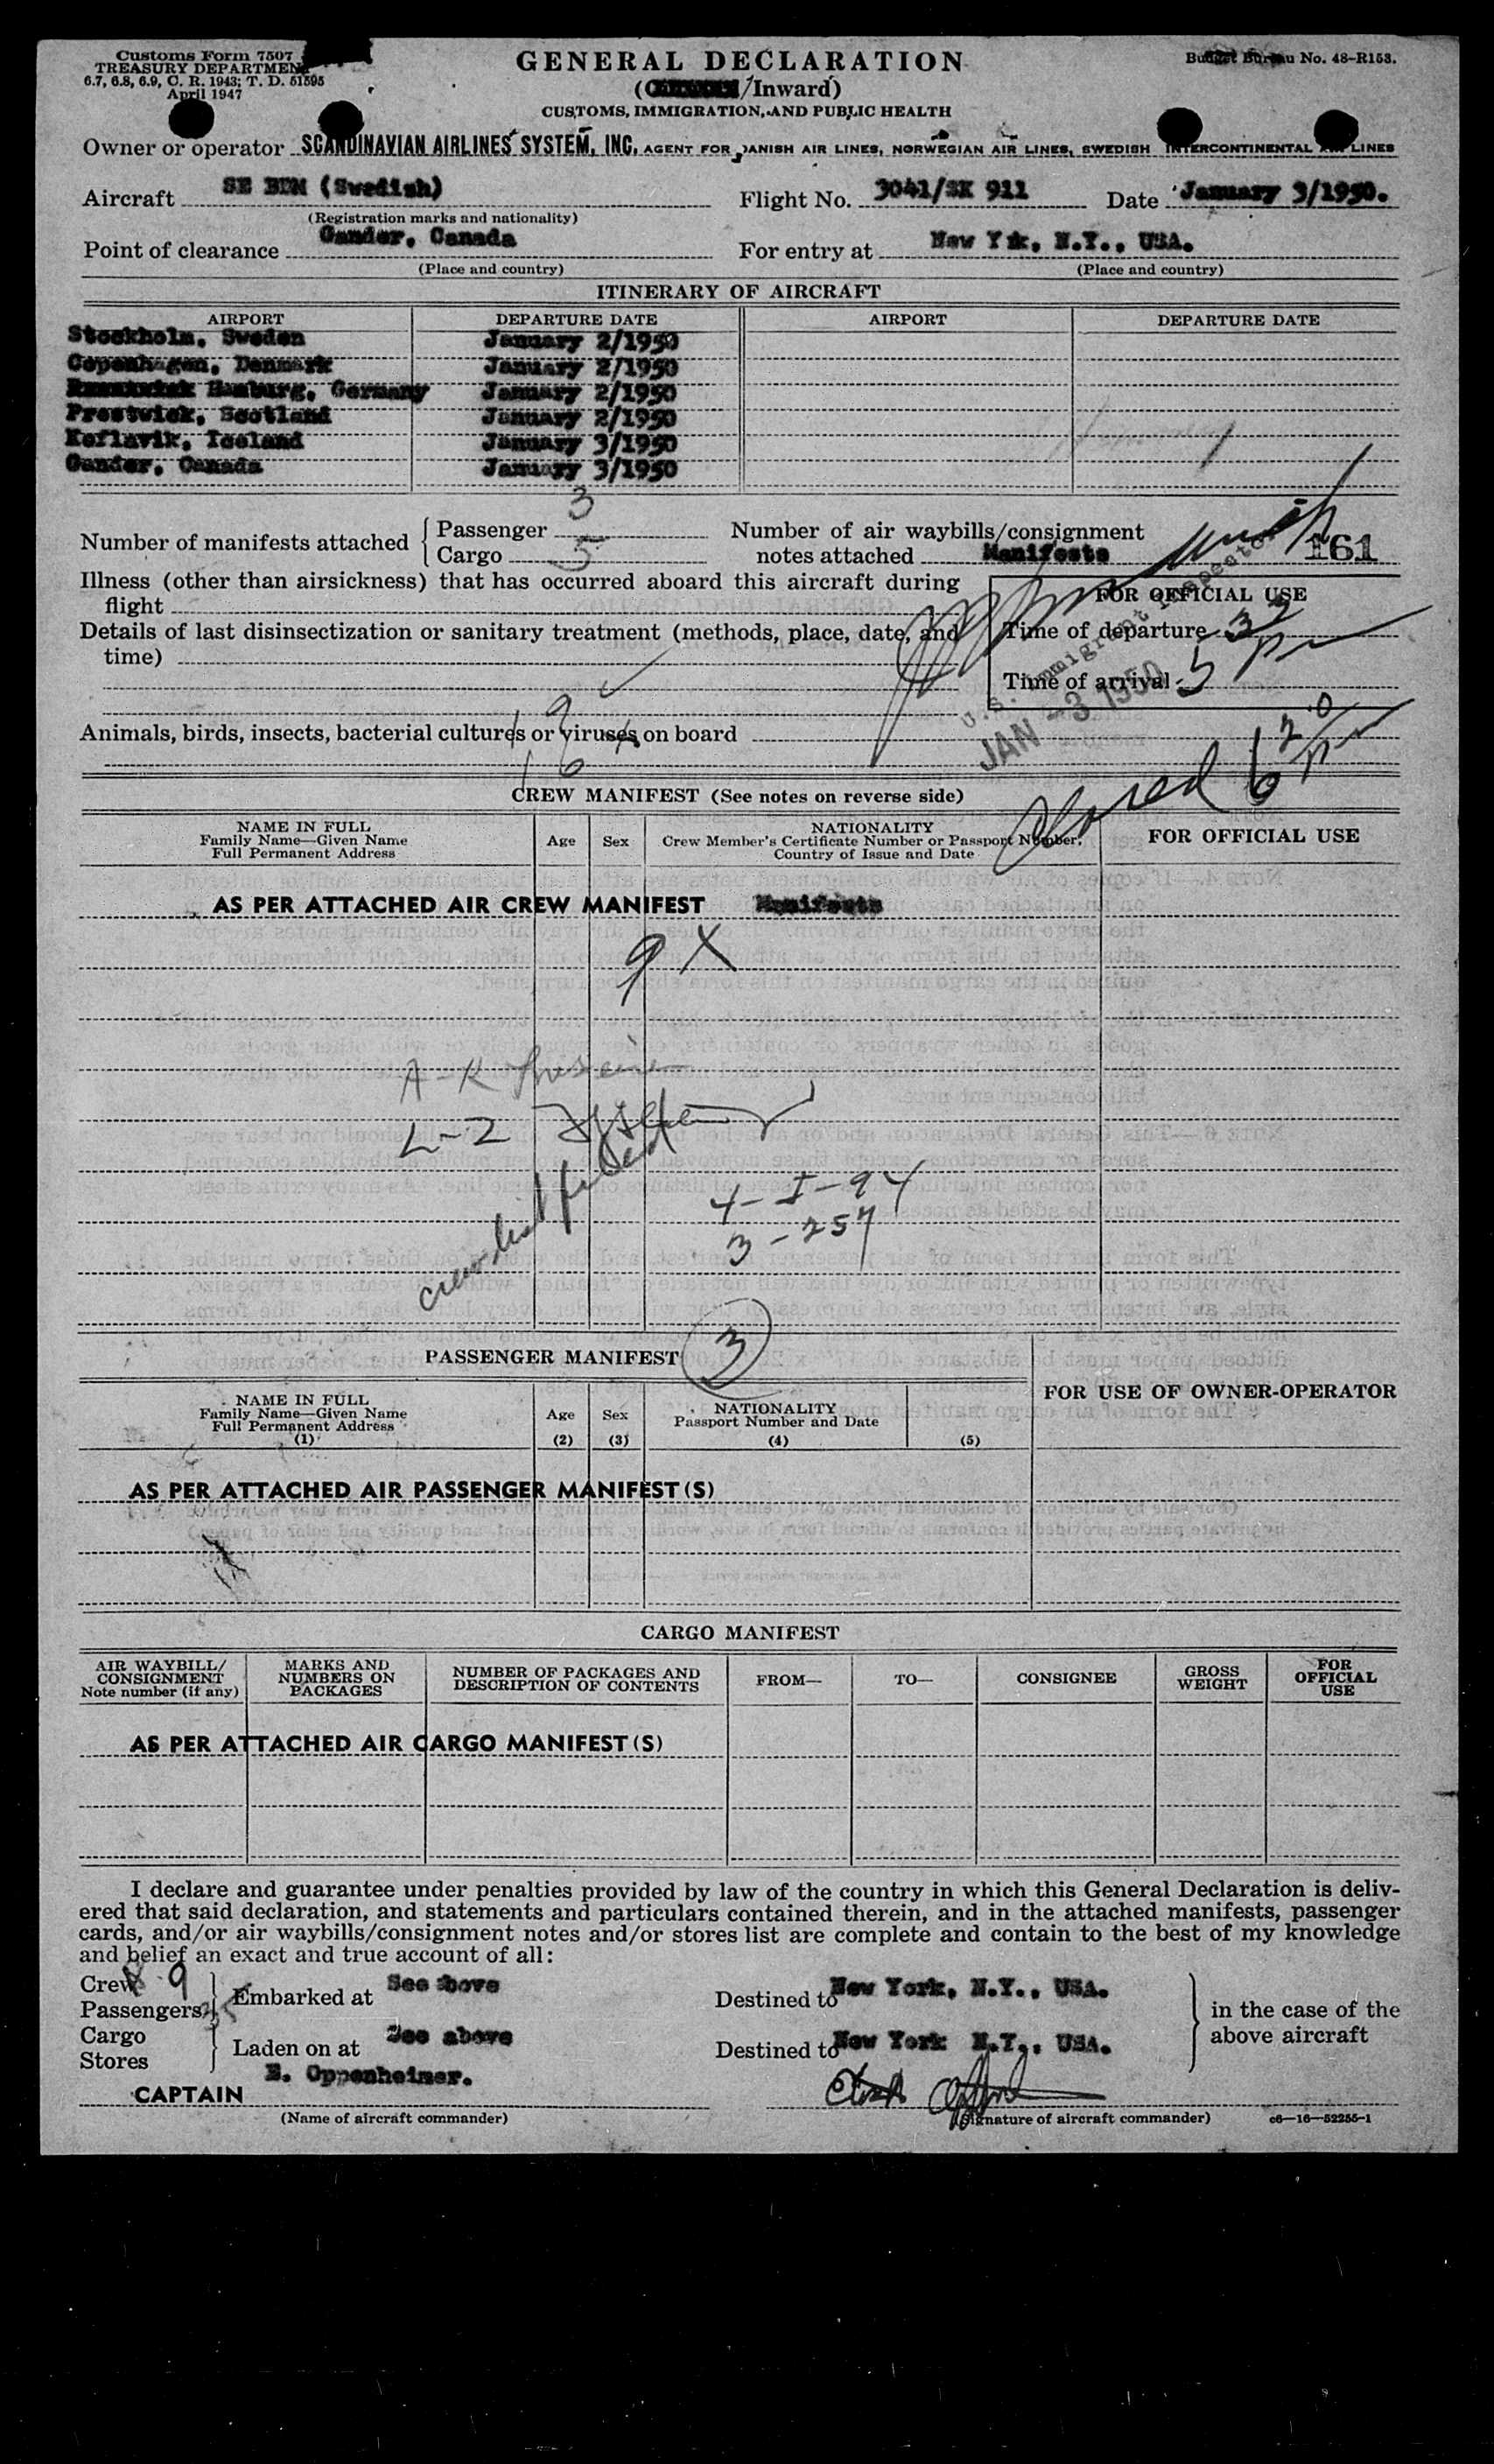 Customs Form 7507
TREASURY DEPARTMENT
6.7, 6.8, 6.9, C. R. 1943; T. D. 51595
April 1947
GENERAL DECLARATION
/Inward)
CUSTOMS, IMMIGRATION, AND PUBLIC HEALTH
Budget Bureau No. 48-R153.
Owner or operator SCANDINAVIAN AIRLINES SYSTEM, INC. AGENT FOR DANISH AIR LINES, NORWEGIAN AIR LINES, SWEDISH INTERCONTINENTAL AIR LINES
Aircraft SE BDM (Swedish) Flight No. 3041/SK 911 Date January 3/1950.
(Registration marks and nationality)
Point of clearance Gander, Canada For entry at New Yrk, N.Y., USA.
(Place and country) (Place and country)
ITINERARY OF AIRCRAFT
AIRPORT DEPARTURE DATE AIRPORT DEPARTURE DATE
Stockholm, Sweden January 2/1950
Copenhagen, Denmark January 2/1950
Hamburg, Germany January 2/1950
Prestwick, Scotland January 2/1950
Keflavik, Iceland January 3/1950
Gander, Canada January 3/1950
Number of manifests attached { Passenger 3
Cargo 5
Number of air waybills/consignment
notes attached Manifests
161
Illness (other than airsickness) that has occurred aboard this aircraft during
flight
Details of last disinsectization or sanitary treatment (methods, place, date, and
time)
FOR OFFICIAL USE
Time of departure
Time of arrival 5 32 Pm
U.S. Immigrant Inspector
JAN -3 1950
Animals, birds, insects, bacterial cultures or viruses on board
19
16
Closed 6 20 Pm
CREW MANIFEST (See notes on reverse side)
NAME IN FULL
Family Name—Given Name
Full Permanent Address
Age Sex
NATIONALITY
Crew Member's Certificate Number or Passport Number,
Country of Issue and Date
FOR OFFICIAL USE
AS PER ATTACHED AIR CREW MANIFEST Manifests
9 X
A-K
L-Z
crew list filed
4-I-94
3-257
PASSENGER MANIFEST 3
NAME IN FULL
Family Name—Given Name
Full Permanent Address
(1)
Age
(2)
Sex
(3)
NATIONALITY
Passport Number and Date
(4) (5)
FOR USE OF OWNER-OPERATOR
AS PER ATTACHED AIR PASSENGER MANIFEST(S)
CARGO MANIFEST
AIR WAYBILL/
CONSIGNMENT
Note number (if any)
MARKS AND
NUMBERS ON
PACKAGES
NUMBER OF PACKAGES AND
DESCRIPTION OF CONTENTS
FROM— TO— CONSIGNEE
GROSS
WEIGHT
FOR
OFFICIAL
USE
AS PER ATTACHED AIR CARGO MANIFEST(S)
I declare and guarantee under penalties provided by law of the country in which this General Declaration is deliv-
ered that said declaration, and statements and particulars contained therein, and in the attached manifests, passenger
cards, and/or air waybills/consignment notes and/or stores list are complete and contain to the best of my knowledge
and belief an exact and true account of all:
Crew 9
Passengers
Embarked at See above Destined to New York, N.Y., USA.
Cargo
Stores
Laden on at See above Destined to New York N.Y., USA.
in the case of the
above aircraft
CAPTAIN E. Oppenheimer.
(Name of aircraft commander) (Signature of aircraft commander) c6—16—52255-1